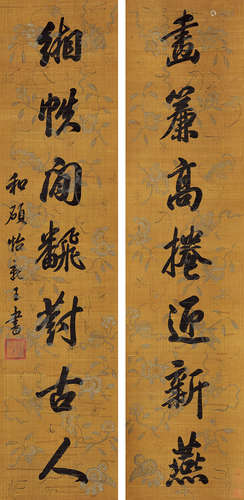 畫簾高捲迎新燕
緗帙閒翻對古人
和碩怡親王書